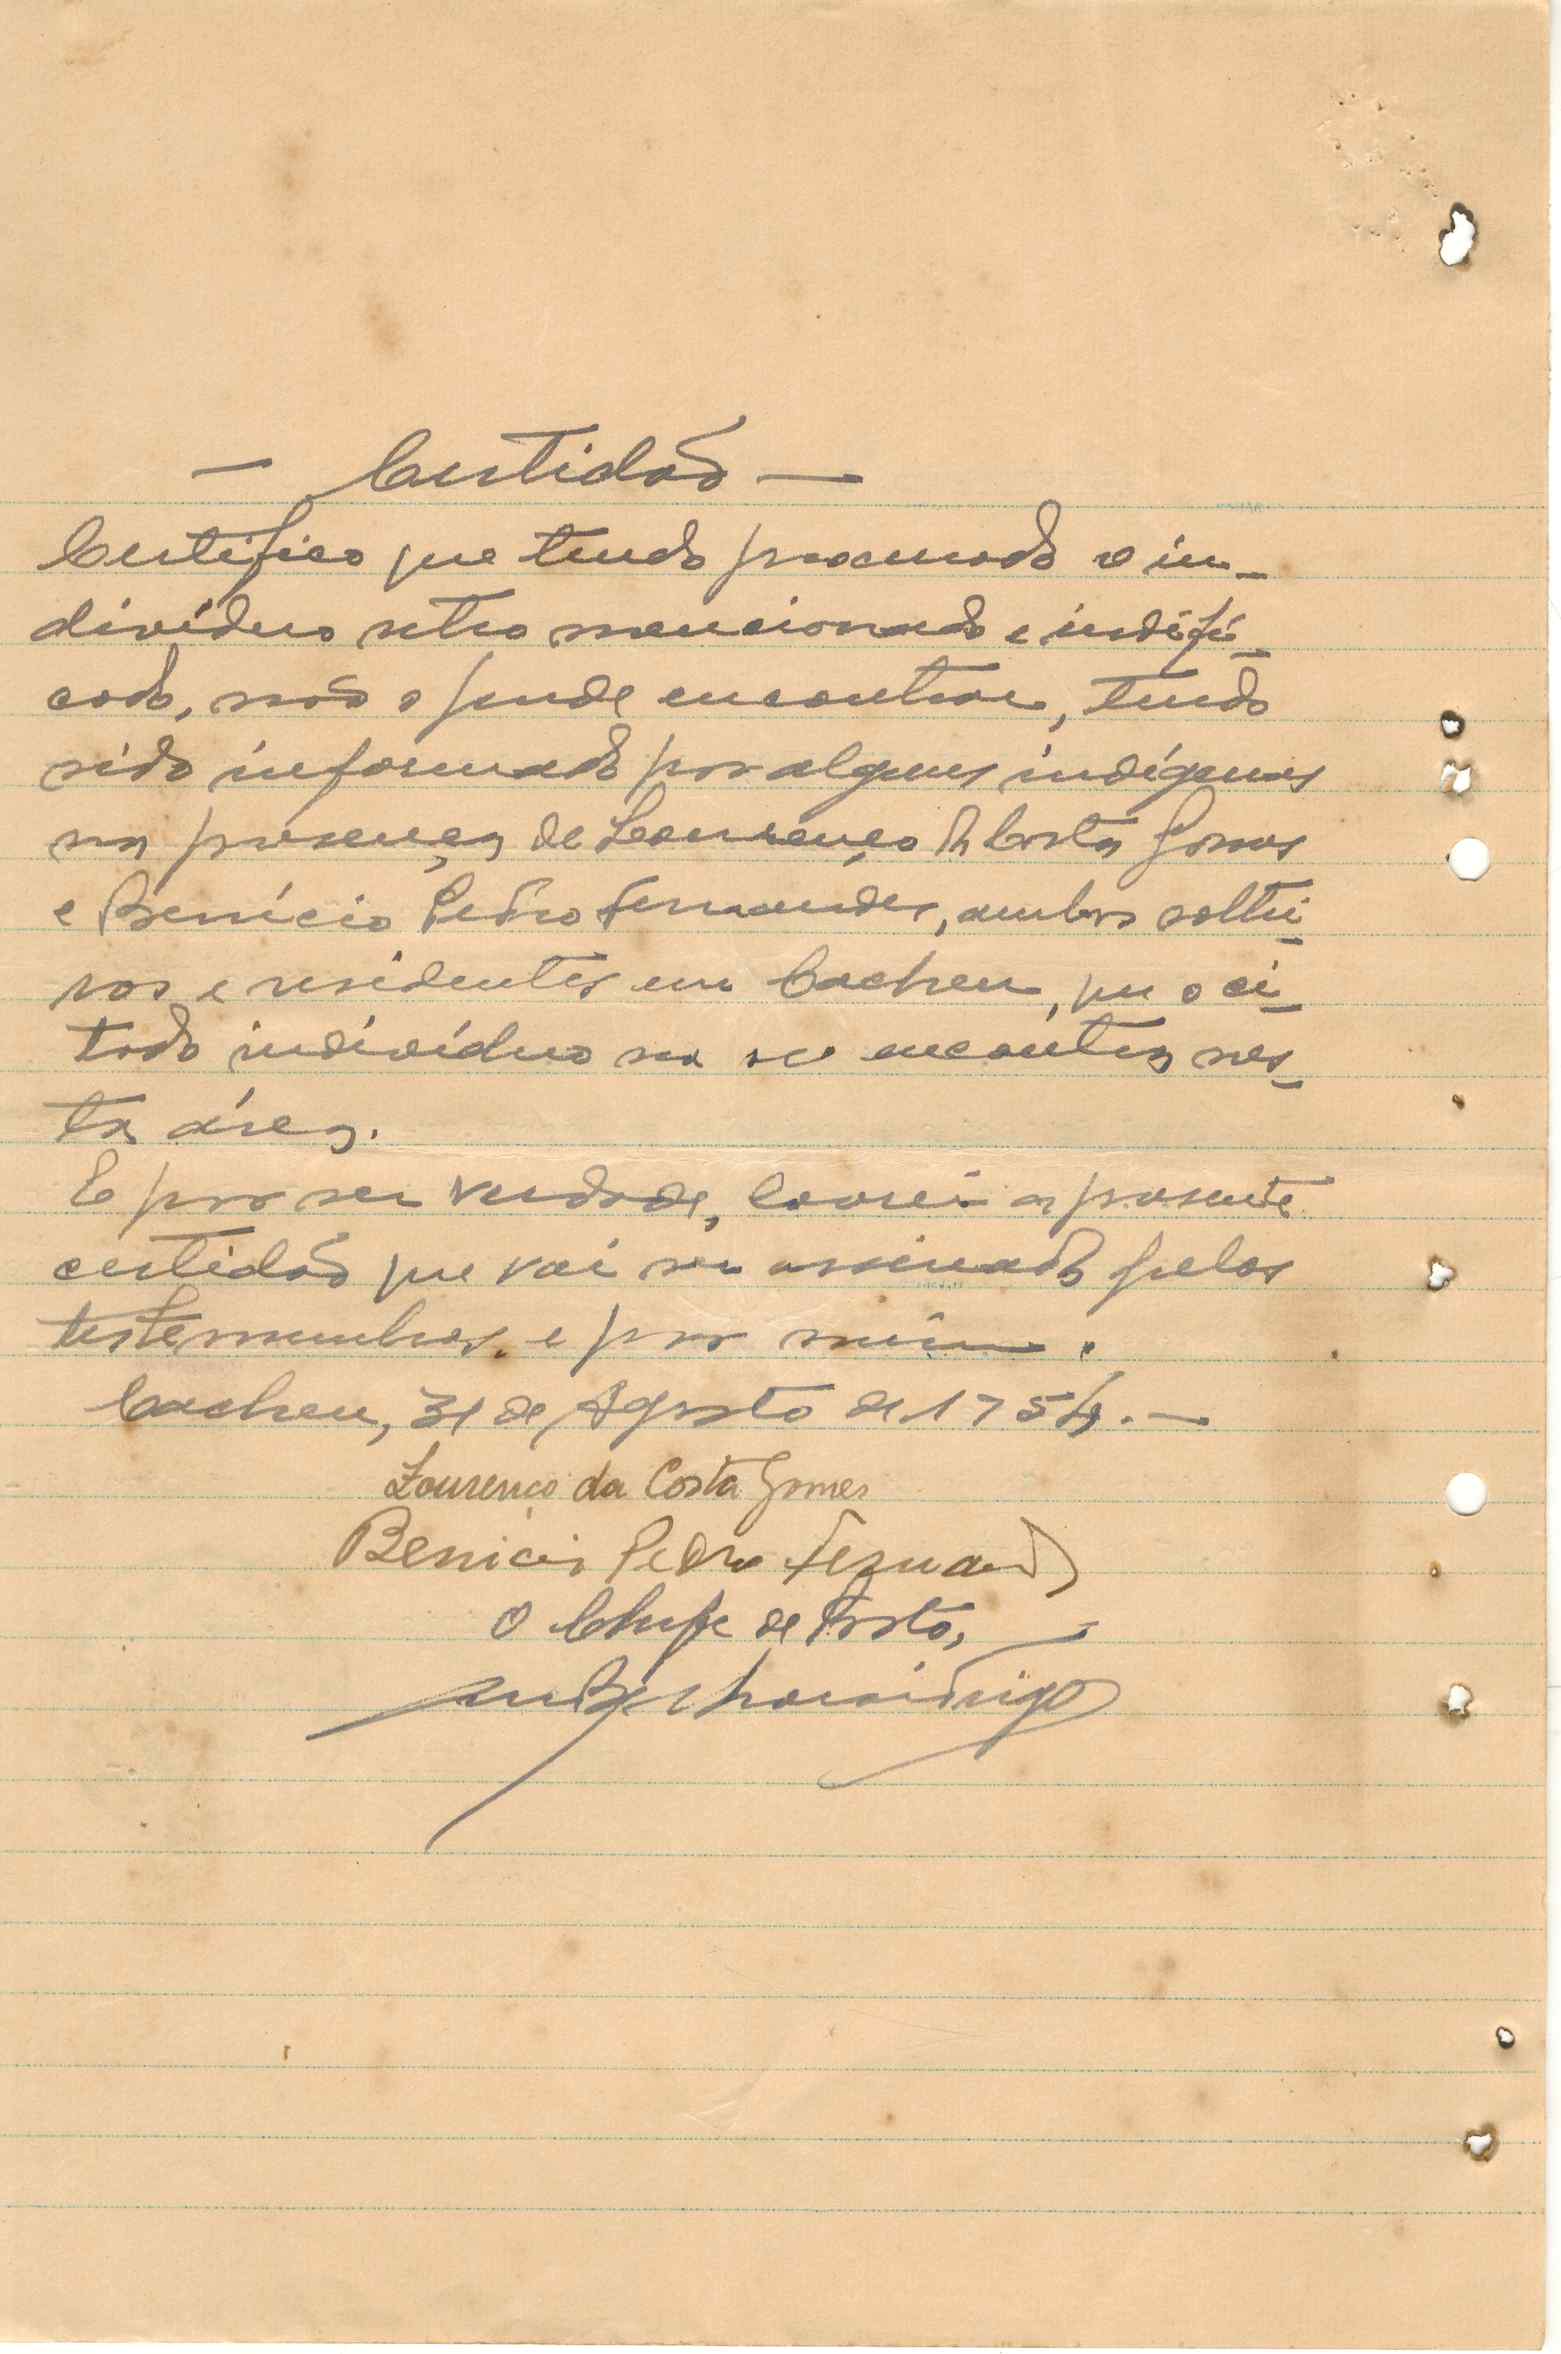 — Certidão —
Certifico que tendo procurado o in-
divíduo retro mencionado e indifi-
cado, não o pude encontrar, tendo
sido informado por alguns indígenas
na presença de Lourenço da Costa Gomes
e Benício Pedro Fernandes, ambos soltei-
ros e residentes em Cacheu, que o ci-
tado indivíduo não se encontra nes-
ta área.
E por ser verdade, lavrei a presente
certidão que vai ser assinada pelas
testemunhas e por mim.
Cacheu, 31 de Agosto de 1954.—
Lourenço da Costa Gomes
Benicio Pedro Fernandes
O Chefe de Posto,